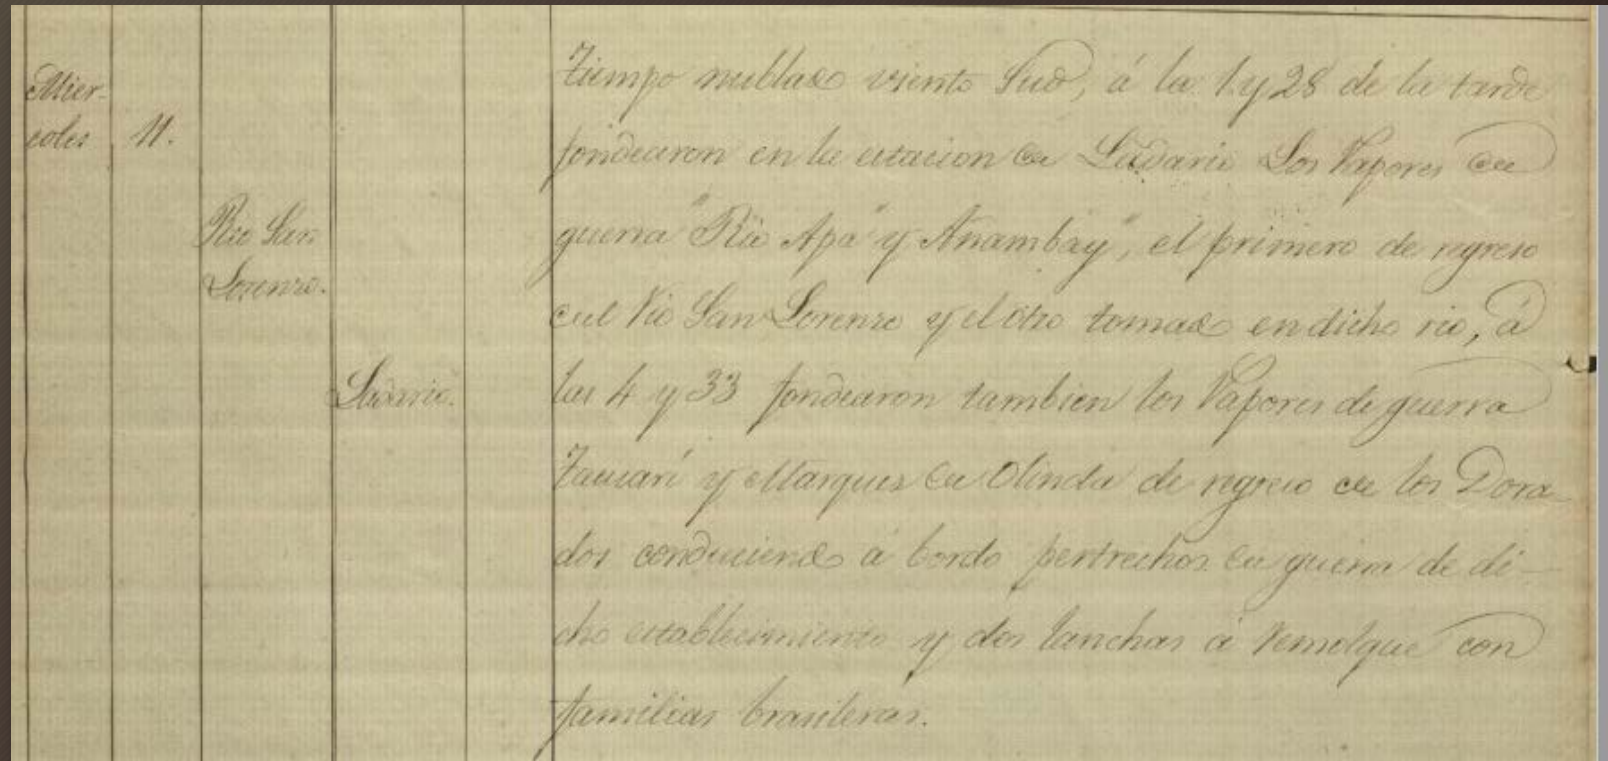 Mier-
coles 11.
Rio San
Lorenzo.
Ladario.
Tiempo nublado viento Sud, á la 1 y 28 de la tarde
fondearon en la estacion de Ladario Los Vapores de
guerra "Rio Apa" y Anambay", el primero de regreso
del Rio San Lorenzo y el otro tomado en dicho rio, á
las 4 y 33 fondearon tambien los Vapores de guerra
Tacuarí y Marques de Olinda de regreso de los Dora-
dos conduciendo á bordo pertrechos de guerra de di-
cho establecimiento y dos lanchas á remolque con
familias brasileras.